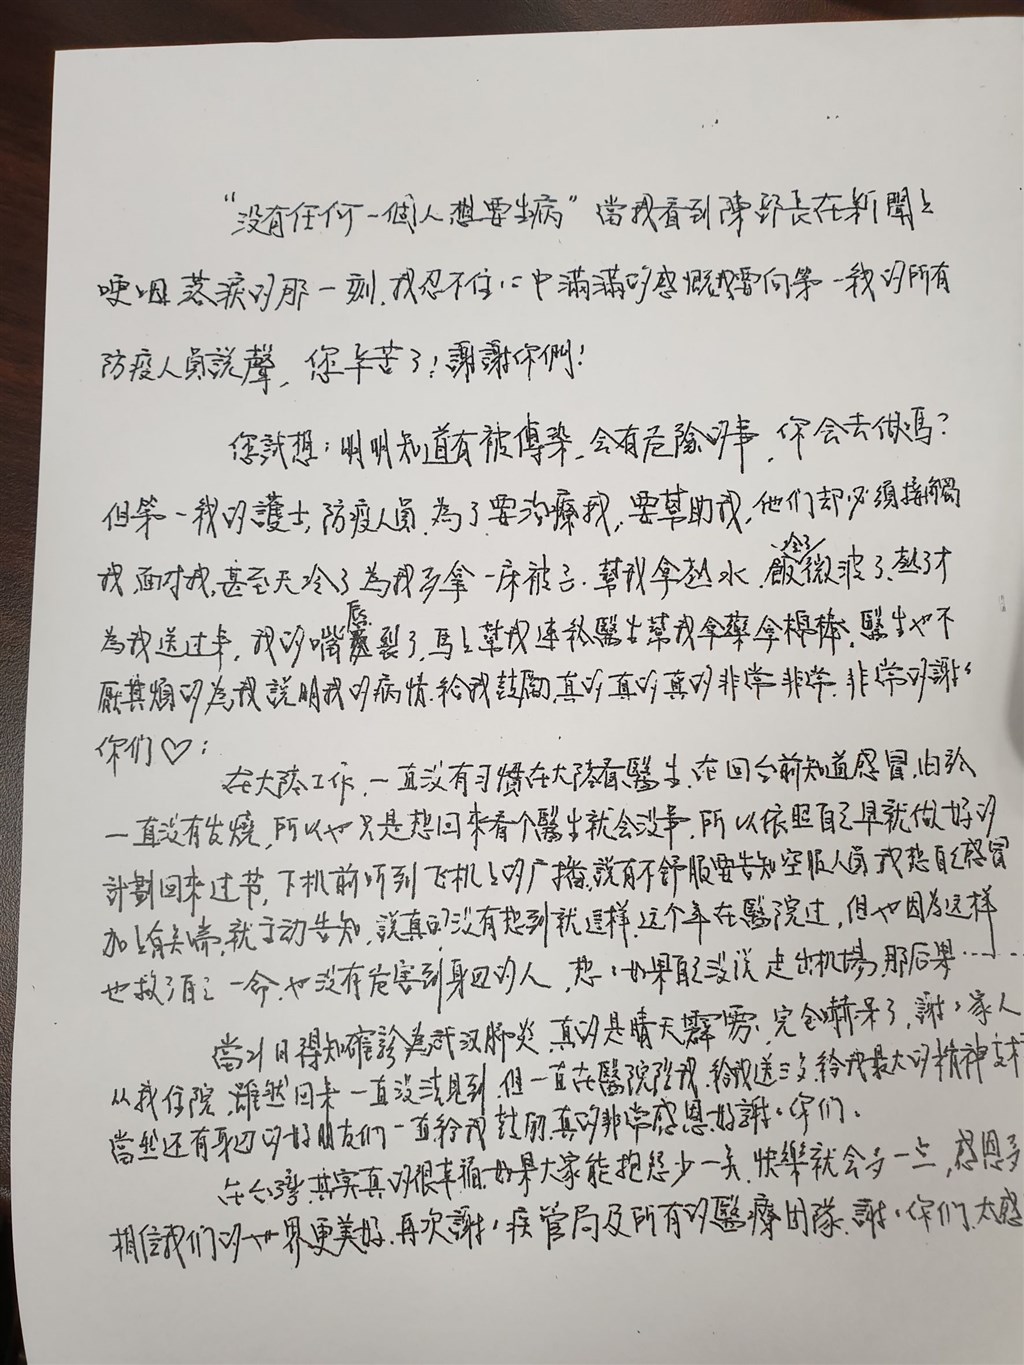 “没有任何一個人想要生病”當我看到陳部長在新聞上
哽咽落淚的那一刻,我忍不住心中滿滿的感慨我要向第一我的所有
防疫人員說聲,您辛苦了!謝謝你們!
您試想:明明知道有被傳染,会有危險的事,你会去做嗎?
但第一我的護士,防疫人員,為了要治療我,要幫助我,他们却必須接觸
我,面对我,甚至天冷了為我多拿一床被子.幫我拿熱水,飯冷了微波了,熱了才
為我送过来,我的嘴唇裂了,馬上幫我連絡醫生幫我拿藥拿棉棒.醫生也不
厭其煩的為我說明我的病情.給我鼓勵,真的真的真的非常非常.非常的謝谢
你们♡:
在大陸工作,一直没有习慣在大陸看醫生,在回台前知道感冒,由於
一直没有发燒,所以也只是想回來看个醫生就会没事,所以依照自己早就做好的
計劃回來过节,下机前听到飞机上的广播,說有不舒服要告知空服人員,我想自己感冒
加上有気喘,就主动告知,說真的没有想到就這样,这个年在醫院过,但也因為这样
也救了自己一命.也没有危害到身边的人,想想如果自己没说走出机場,那后果……
當21日得知確診為武汉肺炎,真的是晴天霹雳,完全嚇呆了,謝謝家人
从我住院,雖然回来一直没法見到.但一直在醫院陪我.給我送三多.給我最大的精神支
當然还有身边的好朋友们一直給我鼓励,真的非常感恩.好謝謝你们.
在台灣,其实真的很幸福.如果大家能抱怨少一点.快樂就会多一点,感恩多
相信我们的世界更美好.再次謝謝疾管局及所有的醫療团隊.謝謝你们,太感